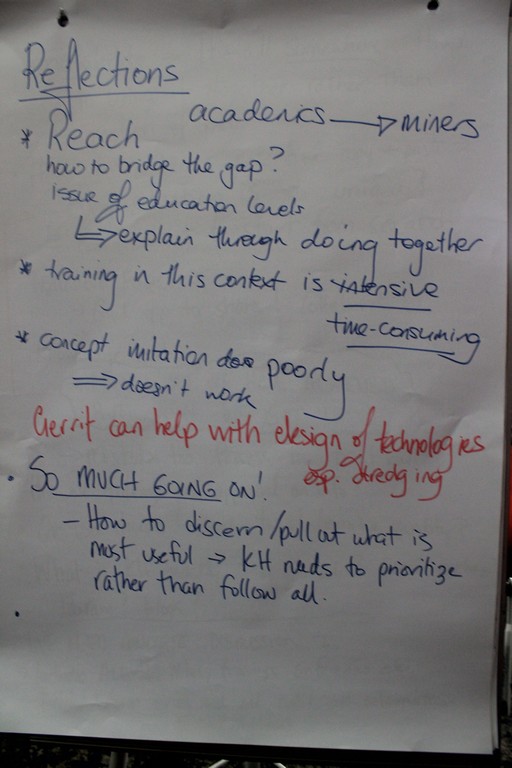 Reflections
academics → miners
* Reach
how to bridge the gap?
issue of education levels
↳ explain through doing together
* training in this context is intensive
time-consuming
* concept imitation done poorly
⇒ doesn't work
Gerrit can help with design of technologies
esp. dredging
• SO MUCH GOING ON!
– How to discern/pull out what is
most useful → KH needs to prioritize
rather than follow all.
•